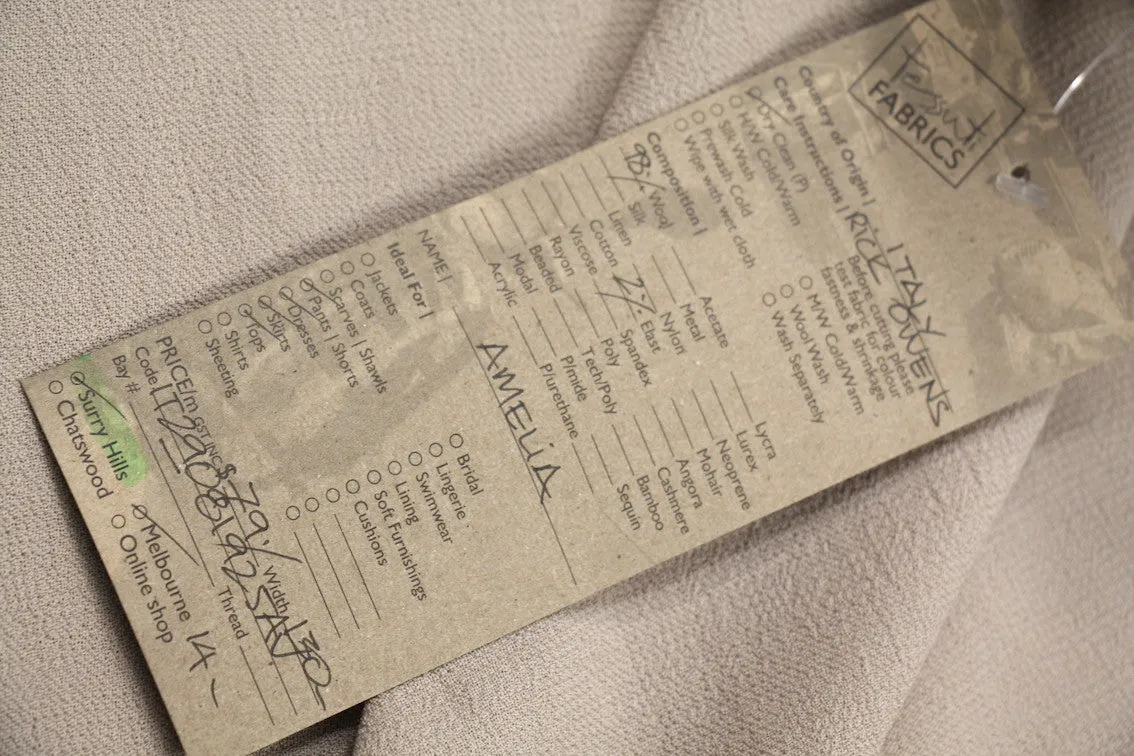 tessuti
FABRICS
Country of Origin | ITALY
Care Instructions | RICK OWENS
Dry Clean (P)
H/W Cold/Warm
Silk Wash
Prewash Cold
Wipe with wet cloth
Before cutting please
test fabric for colour
fastness & shrinkage
M/W Cold/Warm
Wool Wash
Wash Separately
Composition |
98% Wool
Silk
Linen
Cotton
Viscose
Rayon
Beaded
Modal
Acrylic
Acetate
Metal
Nylon
2% Elast
Spandex
Poly
Tech/Poly
P/mide
P/urethane
Lycra
Lurex
Neoprene
Mohair
Angora
Cashmere
Bamboo
Sequin
NAME | AMELIA
Ideal For |
Jackets
Coats
Scarves | Shawls
Pants | Shorts
Dresses
Skirts
Tops
Shirts
Sheeting
Bridal
Lingerie
Swimwear
Lining
Soft Furnishings
Cushions
PRICE/m GST INC $ 79 Width 130
Code
Bay # Thread
Surry Hills
Chatswood
Melbourne 14 ~
Online shop